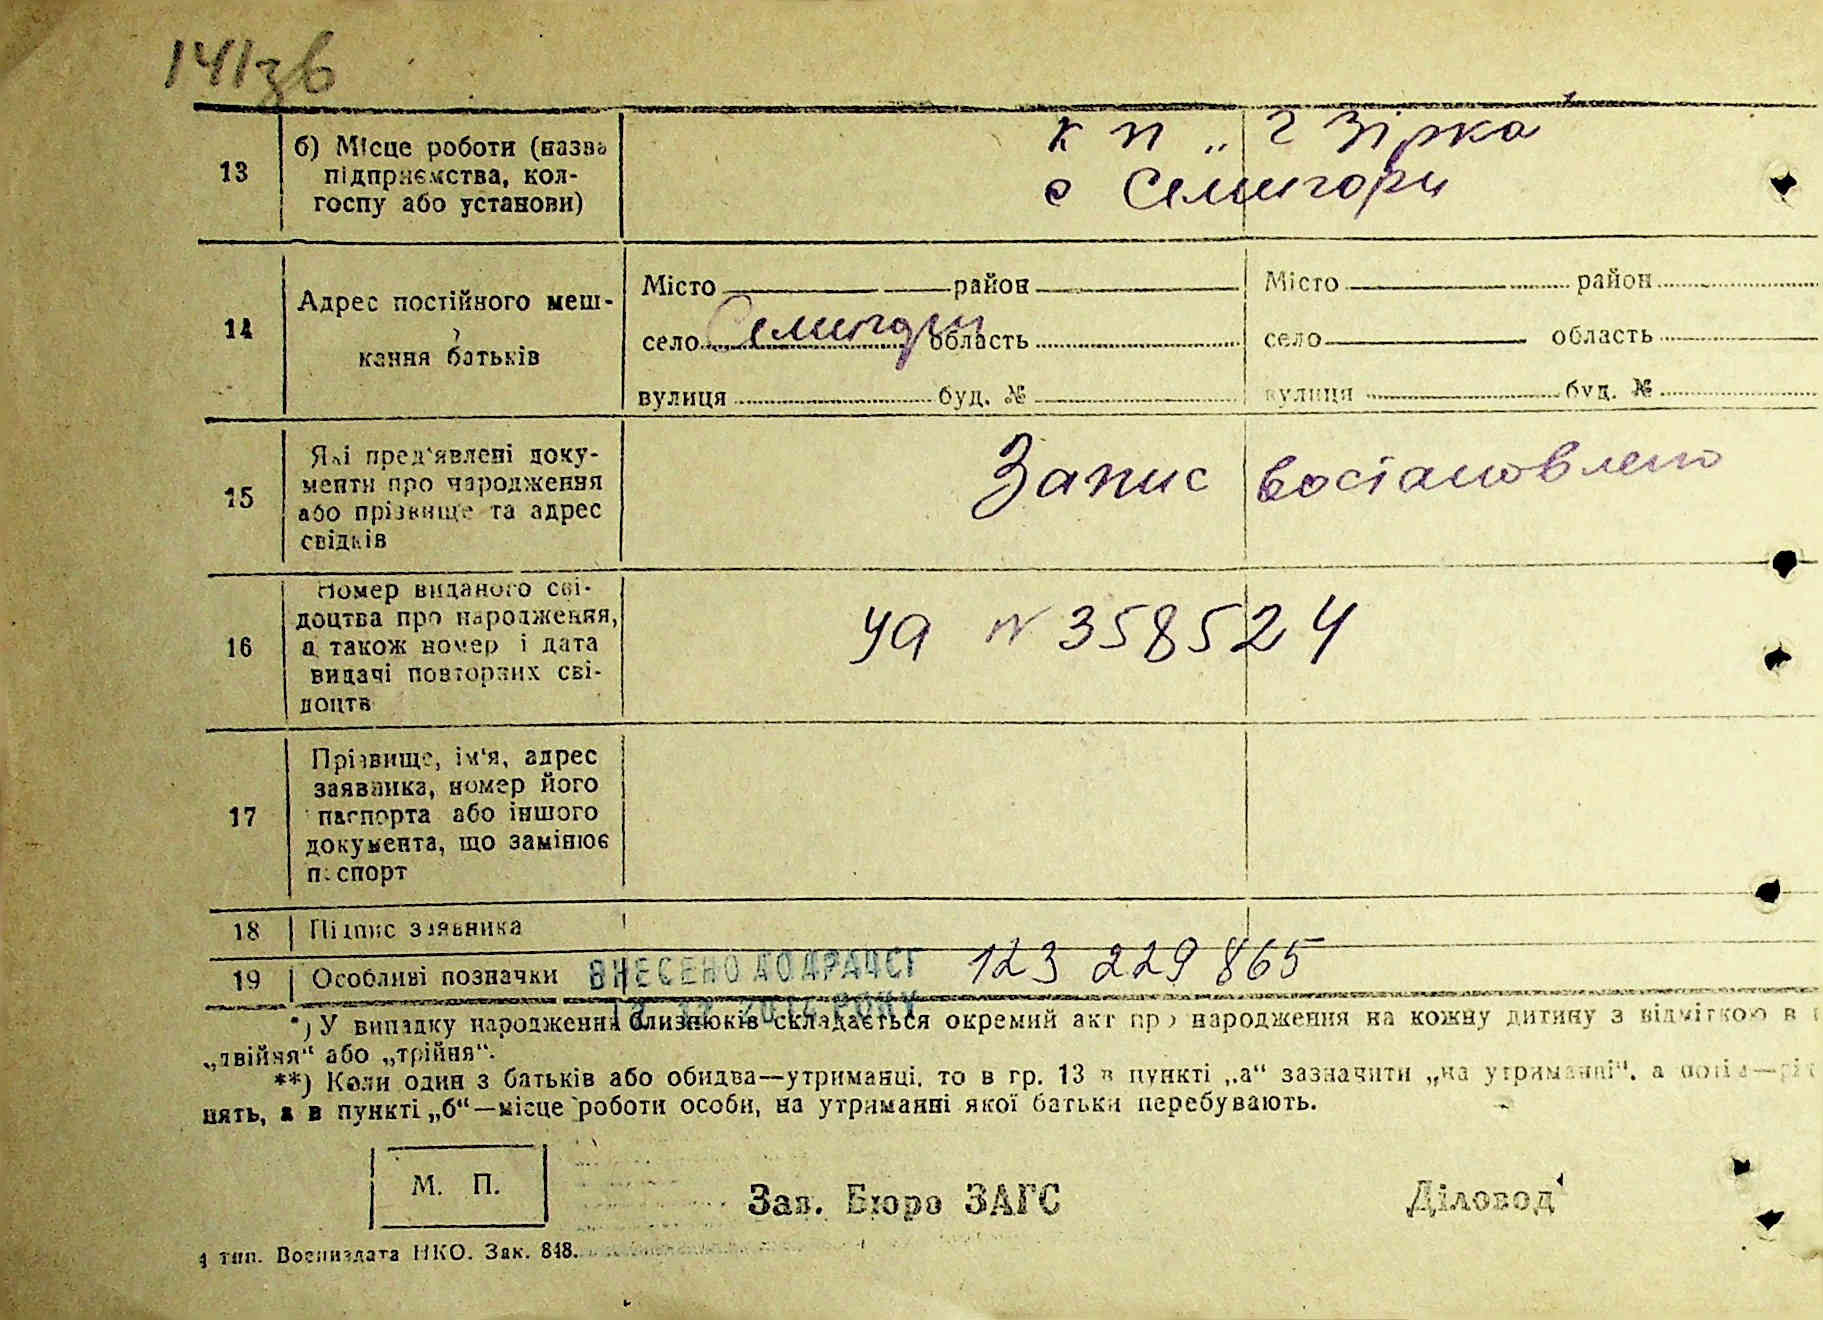 141зв
13
б) Місце роботи (назва
підприємства, кол-
госпу або установи)
к п „ Ч Зірка
с Семигори
14
Адрес постійного меш-
кання батьків
Місто район Місто район
село Семигори область село область
вулиця буд. № вулиця буд. №
15
Які пред'явлені доку-
менти про народження
або прізвище та адрес
свідків
Запис востановлено
16
Номер виданого сві-
доцтва про народження,
а також номер і дата
видачі повторних сві-
доцтв
УА № 358524
17
Прізвище, ім'я, адрес
заявника, номер його
паспорта або іншого
документа, що замінює
паспорт
18 Підпис заявника
19 Особливі позначки ВНЕСЕНО ДО ДРАЦСГ 123 229 865
РОКУ
*) У випадку народження близнюків складається окремий акт про народження на кожну дитину з відміткою в
„двійня“ або „трійня“.
**) Коли один з батьків або обидва—утриманці, то в гр. 13 в пункті „а“ зазначити „на утриманні“, а
нять, а в пункті „б“—місце роботи особи, на утриманні якої батьки перебувають.
М. П.
Зав. Бюро ЗАГС Діловод
4 тип. Воениздата НКО. Зак. 848.